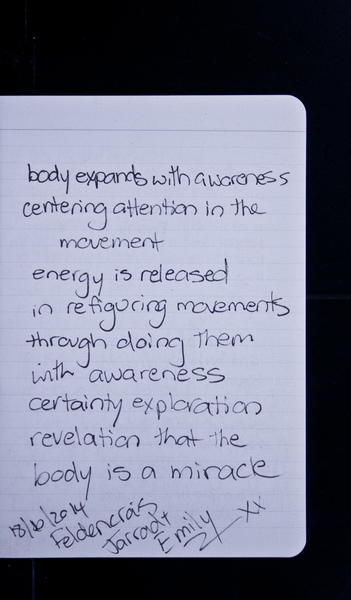 body expands with awareness
centering attention in the
movement
energy is released
in refiguring movements
through doing them
with awareness
certainty exploration
revelation that the
body is a miracle
18/10/2014
Feldencrais
Jarradt
Emily xx